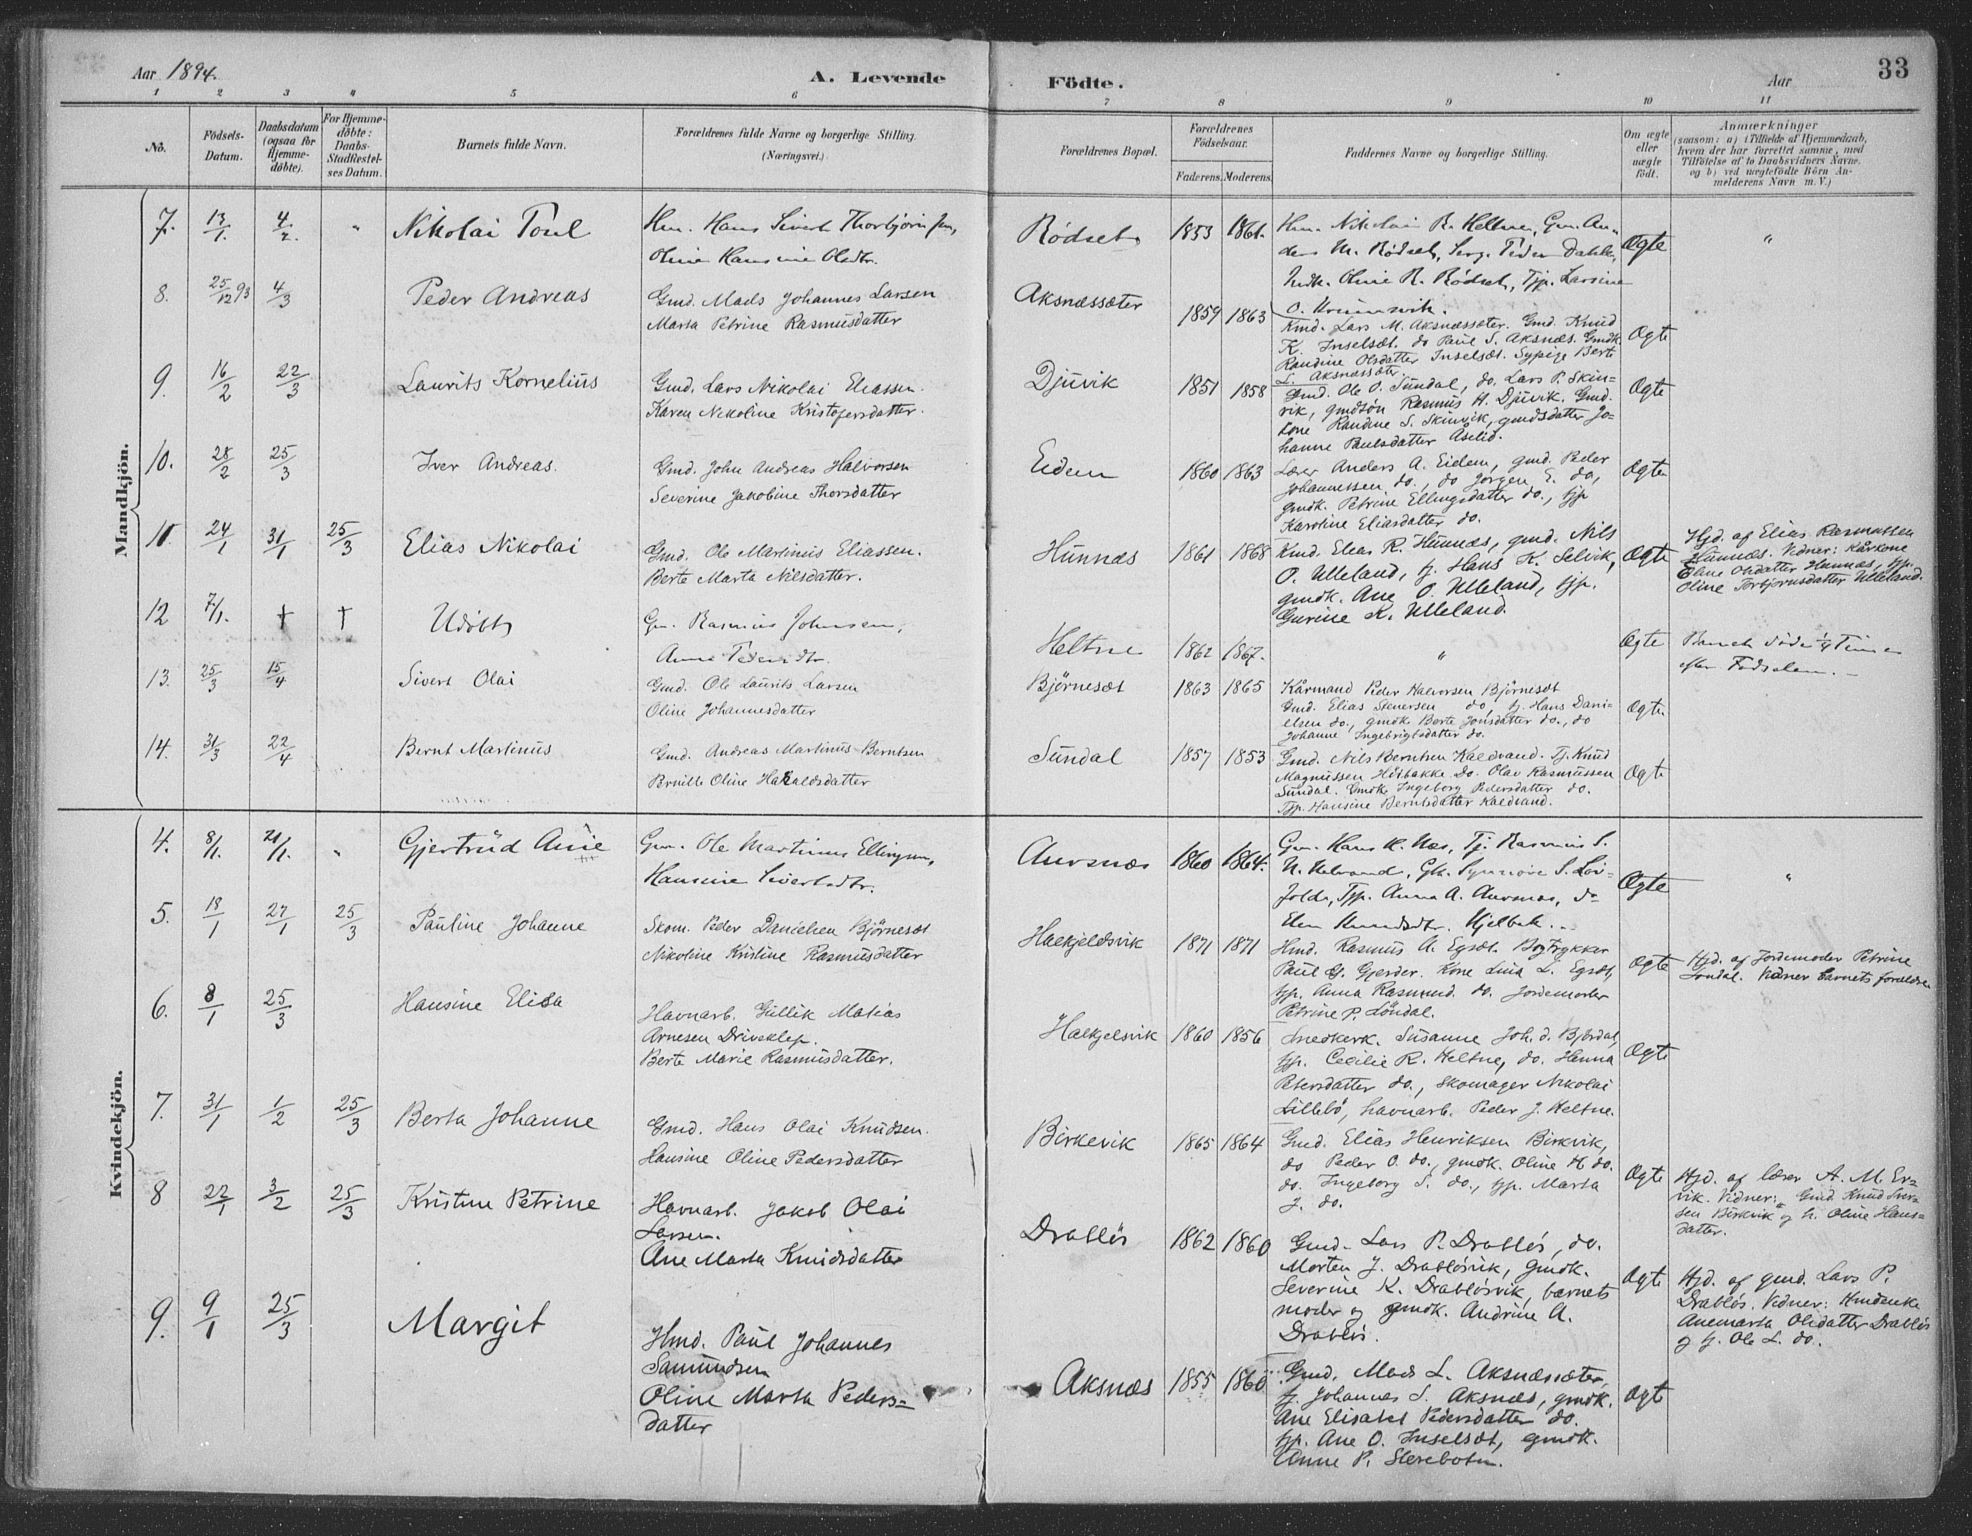 Aar 1894.
A. Levende Födte.
Aar
33
1 2 3 4 5 6 7 8 9 10 11
No.
Födsels-Datum.
Daabsdatum (ogsaa for Hjemme-döbte).
For Hjemme-döbte: Daabs-Stadfæstel-ses Datum.
Barnets fulde Navn.
Forældrenes fulde Navne og borgerlige Stilling. (Næringsvei.)
Forældrenes Bopæl.
Forældrenes Födselsaar.
Faderens. Moderens.
Faddernes Navne og borgerlige Stilling.
Om ægte eller uægte födt.
Anmærkninger
(saasom: a) i Tilfælde af Hjemmedaab, hvem der har forrettet samme, med Tilföielse af to Daabsvidners Navne. og b) ved uægtefödte Börn An-melderens Navn m. V.)
Mandkjön.
7. 13/1. 4/2. " Nikolai Poul
Hm. Hans Sivert Thorbjörnsen,
Oline Hansine Olsdtr.
Rödset 1853 1861.
Hm. Nikolai R. Heltne, Gm. An-
ders M. Rödset, Serg. Peder Dahle,
Indk. Oline R. Rödset, Tjp. Larsine
O.
Ægte "
8. 25/12 93 4/3 Peder Andreas
Gmd. Mads Johannes Larsen
Marta Petrine Rasmusdatter
Aksnæssæter 1859 1863
Kmd. Lars M. Aksnæssæter. Gmd. Knud
K. Inselsæt. do Paul S. Aksnæs. Gmdk
Randine Olsdatter Inselsæt. Sypige Berte
L. Aksnæssæter.
Ægte
9. 16/2 22/3 Laurits Kornelius
Gmd. Lars Nikolai Eliassen.
Karen Nikoline Kristofersdatter.
Djuvik 1851 1858
Gmd. Ole O. Sundal, do. Lars P. Skin=
vik, gmdsön Rasmus H. Djuvik. Gmd.
kone Randine S. Skinvik, gmdsdatter Jo-
hanne Paulsdatter Aselid.
Ægte
10. 28/2 25/3 Iver Andreas.
Gmd. John Andreas Halvorsen
Severine Jakobine Thorsdatter
Eidem 1860 1863
Lærer Anders A. Eidem, gmd. Peder
Johannessen do., do Jörgen E. do,
gmdk. Petrine Ellingsdatter do., tjp
Karoline Eliasdatter do.
Ægte
11. 24/1 31/1 25/3 Elias Nikolai
Gmd. Ole Martinus Eliassen.
Berte Marta Nilsdatter.
Hunnæs 1861 1868
Kmd. Elias R. Hunnæs, gmd. Nils
O. Ulleland, tj. Hans K. Selvik,
gmdk. Ane O. Ulleland, tjp.
Gurine K. Ulleland.
Ægte
Hjd. af Elias Rasmussen
Hunnæs. Vidner: Kårkone
Eline Olsdatter Hunnæs, tjp.
Oline Torbjörnsdatter Ulleland.
12 7/1. † † Udöbt
Gm. Rasmus Johnsen,
Anne Pedersdtr.
Heltne 1862 1867. "
Ægte
Barnet döde 1/4 Time
efter Fødselen. —
13. 25/3 15/4 Sivert Olai
Gmd. Ole Laurits Larsen
Oline Johannesdatter
Björnesæt 1863 1865
Kårmand Peder Halvorsen Björnesæt
Gmd. Elias Stenersen do, tj. Hans Dani-
elsen do., gmdk Berte Jonsdatter do., do
Johanne Ingebrigtsdatter do.
Ægte.
14. 31/3 22/4 Bernt Martinus
Gmd. Andreas Martinus Berntsen
Brnille Oline Haraldsdatter
Sundal 1857 1853
Gmd. Nils Berntsen Kaldvand. Tj. Knud
Magnussen Höibakke do. Olav Rasmussen
Sundal. Gmdk. Ingeborg Pedersdatter do.
Tjp. Hansine Berntsdatter Kaldvand.
Ægte
Kvindekjön.
4. 8/1. 21/1. " Gjertrud Anne
Gm. Ole Martinus Ellingsen,
Hansine Sivertsdtr.
Aursnæs 1860 1864.
Gm. Hans K. Næs, Tj. Rasmus S.
Gk. Synnöve S.
Tjp. Anna A. Aursnæs, do
Elen Knudsdtr. Hjelbak.
Ægte "
5. 18/1 27/1 25/3 Pauline Johanne
Skom. Peder Danielsen Björnesæt
Nikoline Kristine Rasmusdatter
Haekjeldsvik 1871 1871
Hmd. Rasmus A. Egset. Bogtrykker
Paul G. Gjerder. Kone Lina L. Egset,
tjp. Anna Rasmusd. do. Jordemoder
Petrine P. Löndal.
Ægte
Hjd. af Jordemoder Petrine
Londal. Vidner barnets forældre
6. 8/1 25/3 Hansine Elisa
Havnarb. Gullik Matias
Arnesen Driveklep.
Berte Marie Rasmusdatter.
Haekjelsvik 1860 1856
Snedkerk. Susanne Joh. d. Björdal,
tjp. Cecilie R. Heltne, do. Henna
Petersdatter do., Skomager Nikolai
Lillebö, havnarb. Peder J. Heltne.
Ægte
7. 31/1 1/2 25/3 Berta Johanne
Gmd. Hans Olai Knudsen.
Hansine Oline Pedersdatter
Birkevik 1865 1864
Gmd. Elias Henriksen Birkvik,
do Peder O. do., gmdk. Oline H. do.
do. Ingeborg S. do., tjp. Marta
J. do.
Ægte
Hjd. af lærer A. M. Er=
vik. Vidner: Gmd. Knud Iver=
sen Birkvik og h. Oline Hans=
datter.
8 22/1 3/2 25/3 Kristine Petrine
Havnarb. Jakob Olai
Larsen.
Ane Marta Knudsdatter
Drablös 1862 1860
Gmd. Lars P. Drablös, do.
Morten J. Drablösvik, gmdk.
Severine K. Drablösvik, barnets
moder og gmdk. Andrine A.
Drablös.
Ægte
Hjd. af gmd. Lars P.
Drablös. Vidner: Hmdenke
Anemarta Olsdatter Drablös
og tj. Ole L. do.
9. 9/1 25/3 Margit
Hmd. Paul Johannes
Samundsen
Oline Marta Peders=
datter
Aksnæs 1855 1860
Gmd. Mads L. Aksnæssæter,
tj. Johannes S. Aksnæs, gmdk.
Ane Elisabet Pedersdatter do.
tjp. Ane O. Inselsæt, gmdk.
Anne P. Sterebotn.
Ægte